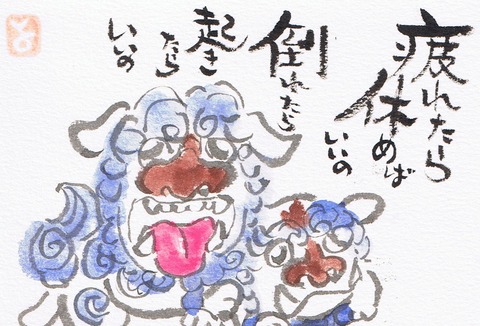 疲れたら
休めば
いいの
倒れたら
起き
たら
いいの